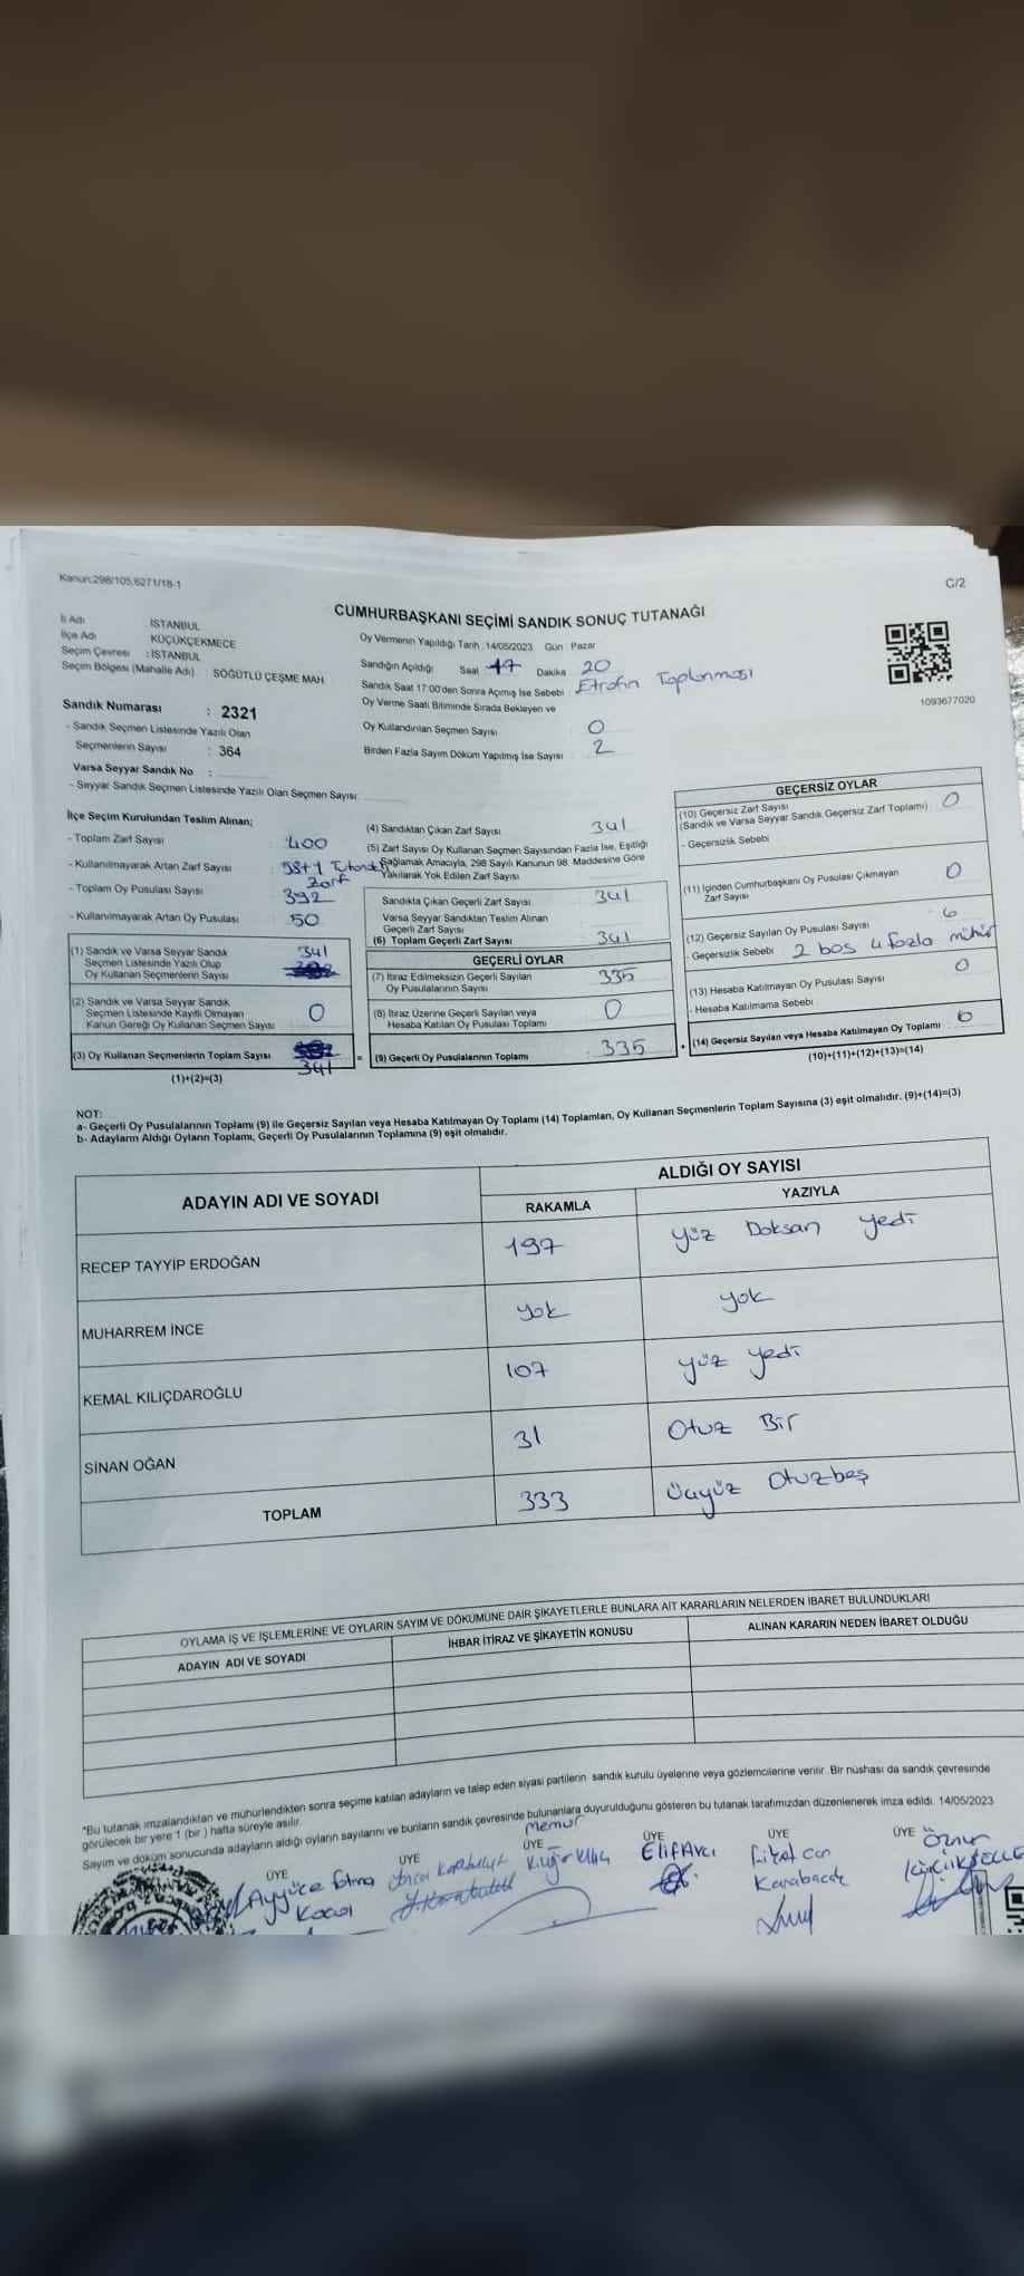 Kanun:298/105,6271/18-1
C/2
CUMHURBAŞKANI SEÇİMİ SANDIK SONUÇ TUTANAĞI
İli Adı : İSTANBUL
İlçe Adı : KÜÇÜKÇEKMECE
Seçim Çevresi : İSTANBUL
Seçim Bölgesi (Mahalle Adı) : SÖĞÜTLÜ ÇEŞME MAH
Sandık Numarası : 2321
- Sandık Seçmen Listesinde Yazılı Olan
Seçmenlerin Sayısı : 364
Varsa Seyyar Sandık No :
- Seyyar Sandık Seçmen Listesinde Yazılı Olan Seçmen Sayısı
Oy Vermenin Yapıldığı Tarih : 14/05/2023 Gün Pazar
Sandığın Açıldığı Saat 17 Dakika 20
Sandık Saat 17:00'den Sonra Açılmış İse Sebebi : Etrafın Toplanması
Oy Verme Saati Bitiminde Sırada Bekleyen ve
Oy Kullandırılan Seçmen Sayısı : 0
Birden Fazla Sayım Döküm Yapılmış İse Sayısı : 2
1093677020
İlçe Seçim Kurulundan Teslim Alınan;
- Toplam Zarf Sayısı : 400
- Kullanılmayarak Artan Zarf Sayısı : 58+1 Tutanak
Zarf
- Toplam Oy Pusulası Sayısı : 392
- Kullanılmayarak Artan Oy Pusulası : 50
(1) Sandık ve Varsa Seyyar Sandık
Seçmen Listesinde Yazılı Olup
Oy Kullanan Seçmenlerin Sayısı
341
(2) Sandık ve Varsa Seyyar Sandık
Seçmen Listesinde Kayıtlı Olmayan
Kanun Gereği Oy Kullanan Seçmen Sayısı
0
(3) Oy Kullanan Seçmenlerin Toplam Sayısı
341
(1)+(2)=(3)
(4) Sandıktan Çıkan Zarf Sayısı 341
(5) Zarf Sayısı Oy Kullanan Seçmen Sayısından Fazla İse, Eşitliği
Sağlamak Amacıyla, 298 Sayılı Kanunun 98. Maddesine Göre
Yakılarak Yok Edilen Zarf Sayısı
Sandıkta Çıkan Geçerli Zarf Sayısı 341
Varsa Seyyar Sandıktan Teslim Alınan
Geçerli Zarf Sayısı
(6) Toplam Geçerli Zarf Sayısı 341
GEÇERLİ OYLAR
(7) İtiraz Edilmeksizin Geçerli Sayılan
Oy Pusulalarının Sayısı
335
(8) İtiraz Üzerine Geçerli Sayılan veya
Hesaba Katılan Oy Pusulası Toplamı
0
= (9) Geçerli Oy Pusulalarının Toplamı : 335
GEÇERSİZ OYLAR
(10) Geçersiz Zarf Sayısı 0
(Sandık ve Varsa Seyyar Sandık Geçersiz Zarf Toplamı)
- Geçersizlik Sebebi
(11) İçinden Cumhurbaşkanı Oy Pusulası Çıkmayan
Zarf Sayısı
0
(12) Geçersiz Sayılan Oy Pusulası Sayısı 6
- Geçersizlik Sebebi 2 boş 4 fazla mühür
(13) Hesaba Katılmayan Oy Pusulası Sayısı 0
- Hesaba Katılmama Sebebi
+ (14) Geçersiz Sayılan veya Hesaba Katılmayan Oy Toplamı 6
(10)+(11)+(12)+(13)=(14)
NOT:
a- Geçerli Oy Pusulalarının Toplamı (9) ile Geçersiz Sayılan veya Hesaba Katılmayan Oy Toplamı (14) Toplamları, Oy Kullanan Seçmenlerin Toplam Sayısına (3) eşit olmalıdır. (9)+(14)=(3)
b- Adayların Aldığı Oyların Toplamı, Geçerli Oy Pusulalarının Toplamına (9) eşit olmalıdır.
ADAYIN ADI VE SOYADI
ALDIĞI OY SAYISI
RAKAMLA YAZIYLA
RECEP TAYYİP ERDOĞAN 197 yüz Doksan yedi
MUHARREM İNCE yok yok
KEMAL KILIÇDAROĞLU 107 yüz yedi
SİNAN OĞAN 31 Otuz Bir
TOPLAM 333 üçyüz Otuzbeş
OYLAMA İŞ VE İŞLEMLERİNE VE OYLARIN SAYIM VE DÖKÜMÜNE DAİR ŞİKAYETLERLE BUNLARA AİT KARARLARIN NELERDEN İBARET BULUNDUKLARI
ADAYIN ADI VE SOYADI İHBAR İTİRAZ VE ŞİKAYETİN KONUSU ALINAN KARARIN NEDEN İBARET OLDUĞU
*Bu tutanak imzalandıktan ve mühürlendikten sonra seçime katılan adayların ve talep eden siyasi partilerin sandık kurulu üyelerine veya gözlemcilerine verilir. Bir nüshası da sandık çevresinde
görülecek bir yere 1 (bir) hafta süreyle asılır.
Sayım ve döküm sonucunda adayların aldığı oyların sayılarını ve bunların sandık çevresinde bulunanlara duyurulduğunu gösteren bu tutanak tarafımızdan düzenlenerek imza edildi. 14/05/2023
Memur
ÜYE ÜYE ÜYE ÜYE ÜYE ÜYE
Elif Avcı
Karabacak
Öznur